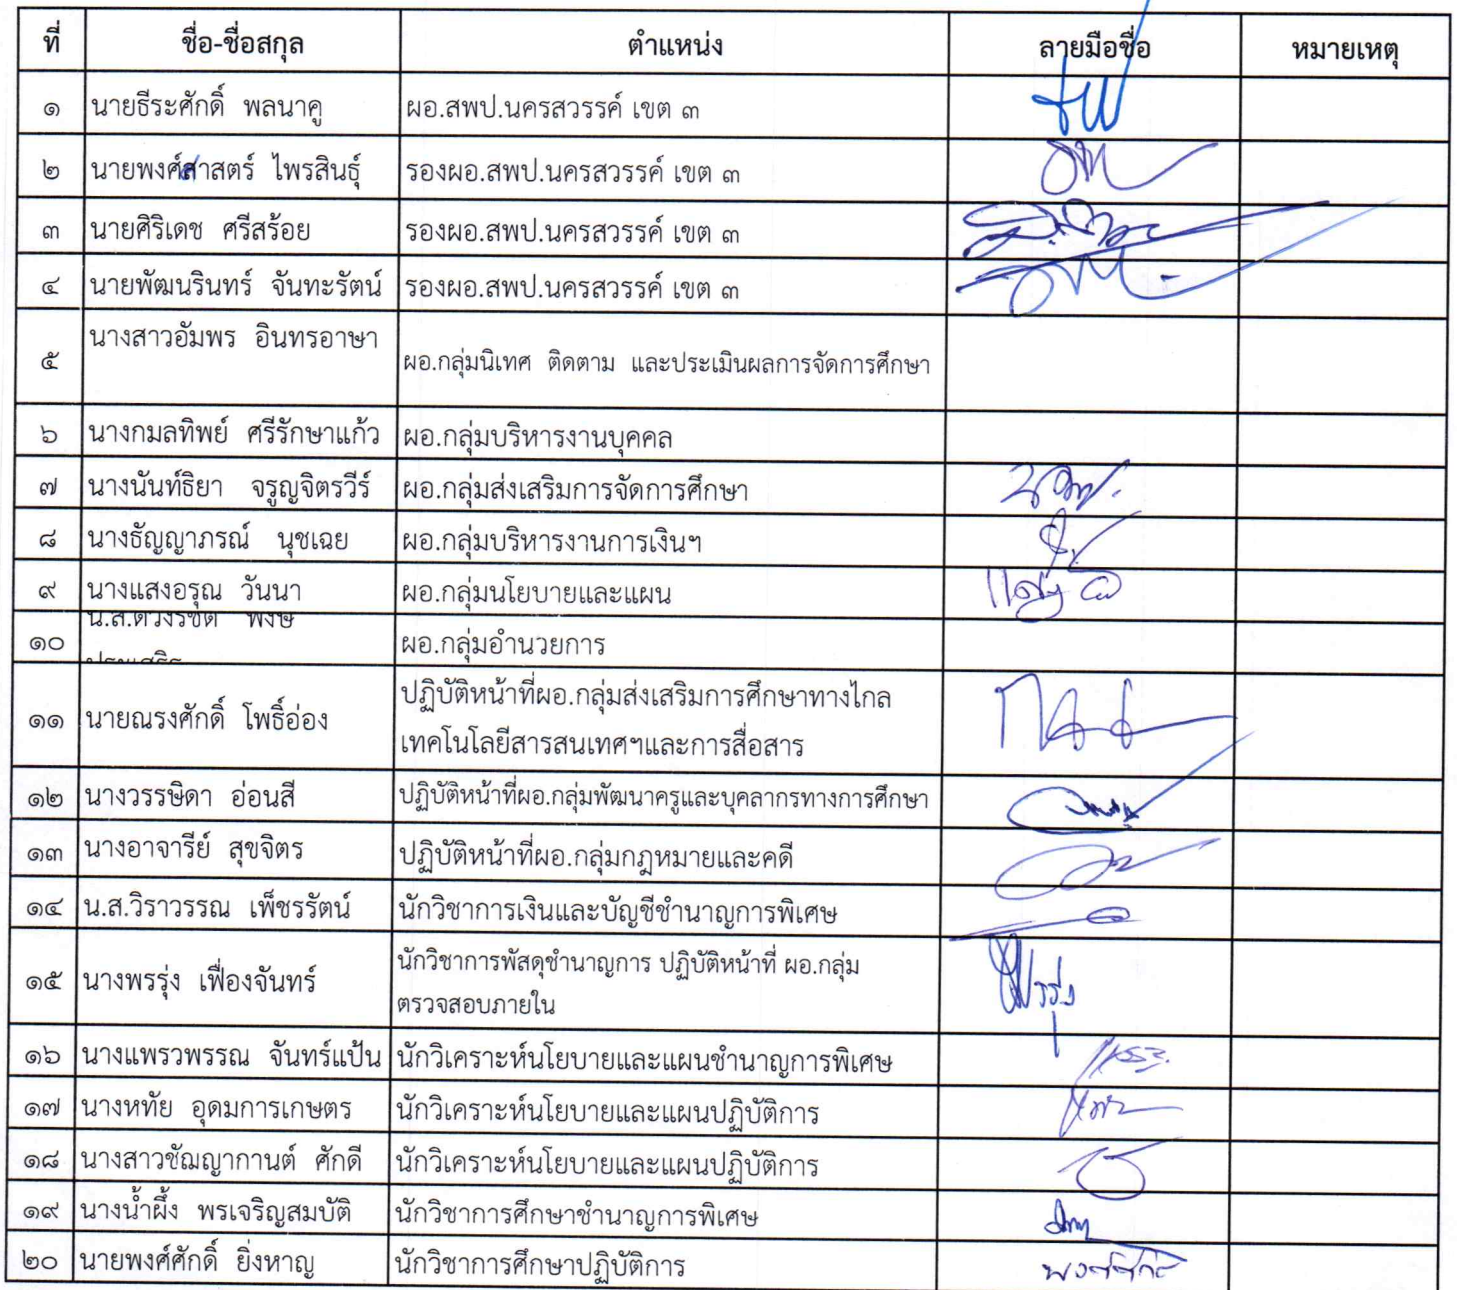 ที่ ชื่อ-ชื่อสกุล ตำแหน่ง ลายมือชื่อ หมายเหตุ
๑ นายธีระศักดิ์ พลนาคู ผอ.สพป.นครสวรรค์ เขต ๓
๒ นายพงศ์ศาสตร์ ไพรสินธุ์ รองผอ.สพป.นครสวรรค์ เขต ๓
๓ นายศิริเดช ศรีสร้อย รองผอ.สพป.นครสวรรค์ เขต ๓
๔ นายพัฒนรินทร์ จันทะรัตน์ รองผอ.สพป.นครสวรรค์ เขต ๓
๕ นางสาวอัมพร อินทรอาษา ผอ.กลุ่มนิเทศ ติดตาม และประเมินผลการจัดการศึกษา
๖ นางกมลทิพย์ ศรีรักษาแก้ว ผอ.กลุ่มบริหารงานบุคคล
๗ นางนันท์ธิยา จรูญจิตรวีร์ ผอ.กลุ่มส่งเสริมการจัดการศึกษา
๘ นางธัญญาภรณ์ นุชเฉย ผอ.กลุ่มบริหารงานการเงินฯ
๙ นางแสงอรุณ วันนา ผอ.กลุ่มนโยบายและแผน
๑๐ ผอ.กลุ่มอำนวยการ
๑๑ นายณรงศักดิ์ โพธิ์อ่อง ปฏิบัติหน้าที่ผอ.กลุ่มส่งเสริมการศึกษาทางไกล
เทคโนโลยีสารสนเทศฯและการสื่อสาร
๑๒ นางวรรษิดา อ่อนสี ปฏิบัติหน้าที่ผอ.กลุ่มพัฒนาครูและบุคลากรทางการศึกษา
๑๓ นางอาจารีย์ สุขจิตร ปฏิบัติหน้าที่ผอ.กลุ่มกฎหมายและคดี
๑๔ น.ส.วิราวรรณ เพ็ชรรัตน์ นักวิชาการเงินและบัญชีชำนาญการพิเศษ
๑๕ นางพรรุ่ง เฟื่องจันทร์ นักวิชาการพัสดุชำนาญการ ปฏิบัติหน้าที่ ผอ.กลุ่ม
ตรวจสอบภายใน
๑๖ นางแพรวพรรณ จันทร์แป้น นักวิเคราะห์นโยบายและแผนชำนาญการพิเศษ
๑๗ นางหทัย อุดมการเกษตร นักวิเคราะห์นโยบายและแผนปฏิบัติการ
๑๘ นางสาวชัฌญากานต์ ศักดี นักวิเคราะห์นโยบายและแผนปฏิบัติการ
๑๙ นางน้ำผึ้ง พรเจริญสมบัติ นักวิชาการศึกษาชำนาญการพิเศษ
๒๐ นายพงศ์ศักดิ์ ยิ่งหาญ นักวิชาการศึกษาปฏิบัติการ